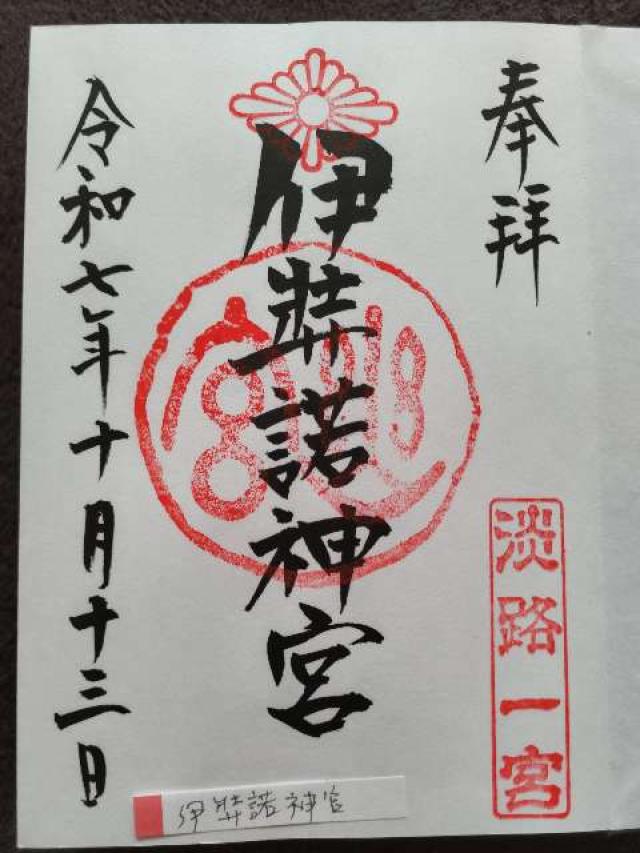 奉拝
淡路一宮
伊弉諾神宮
令和七年十月十三日
伊弉諾神宮